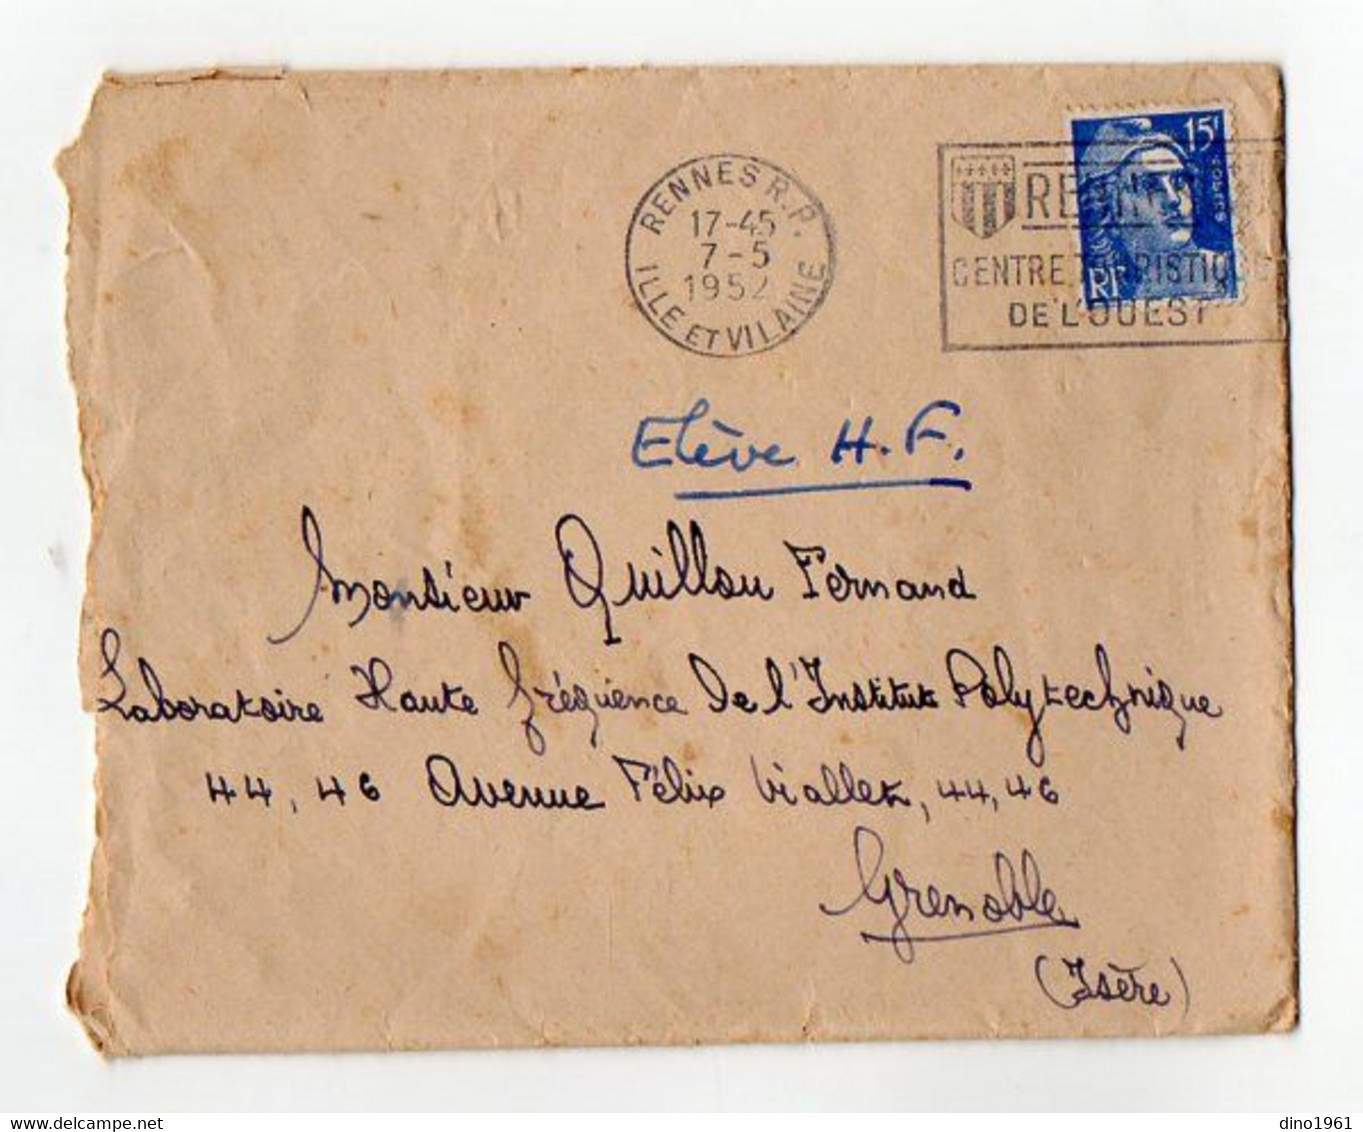 RENNES R.P.
17-45
7-5
1952
ILLE ET VILAINE
15F
RENNES
CENTRE TOURISTIQUE
DE L'OUEST
RF
Elève H.F.
Monsieur Quillou Fernand
Laboratoire Haute fréquence de l'Institut Polytechnique
44, 46 Avenue Félix Viallet, 44, 46
Grenoble
(Isère)
dino1961